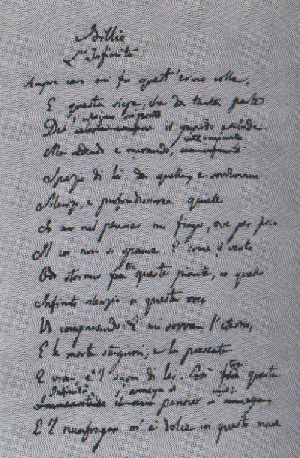 Idillio
L'Infinito
Sempre caro mi fu quest'ermo colle,
E questa siepe, che da tanta parte
De il guardo esclude.
Ma sedendo e mirando,
Spazio di là da quella, e sovrumani
Silenzi, e profondissima quiete
Io nel pensier mi fingo, ove per poco
Il cor non si spaura. E come il vento
Odo stormir fra queste piante, io quello
Infinito silenzio a questa voce
Vo comparando: e mi sovvien l'eterno,
E le morte stagioni, e la presente
E viva, e 'l suon di lei. Così fra questa
il mio pensier s'annega,
E 'l naufragar m'è dolce in questo mare